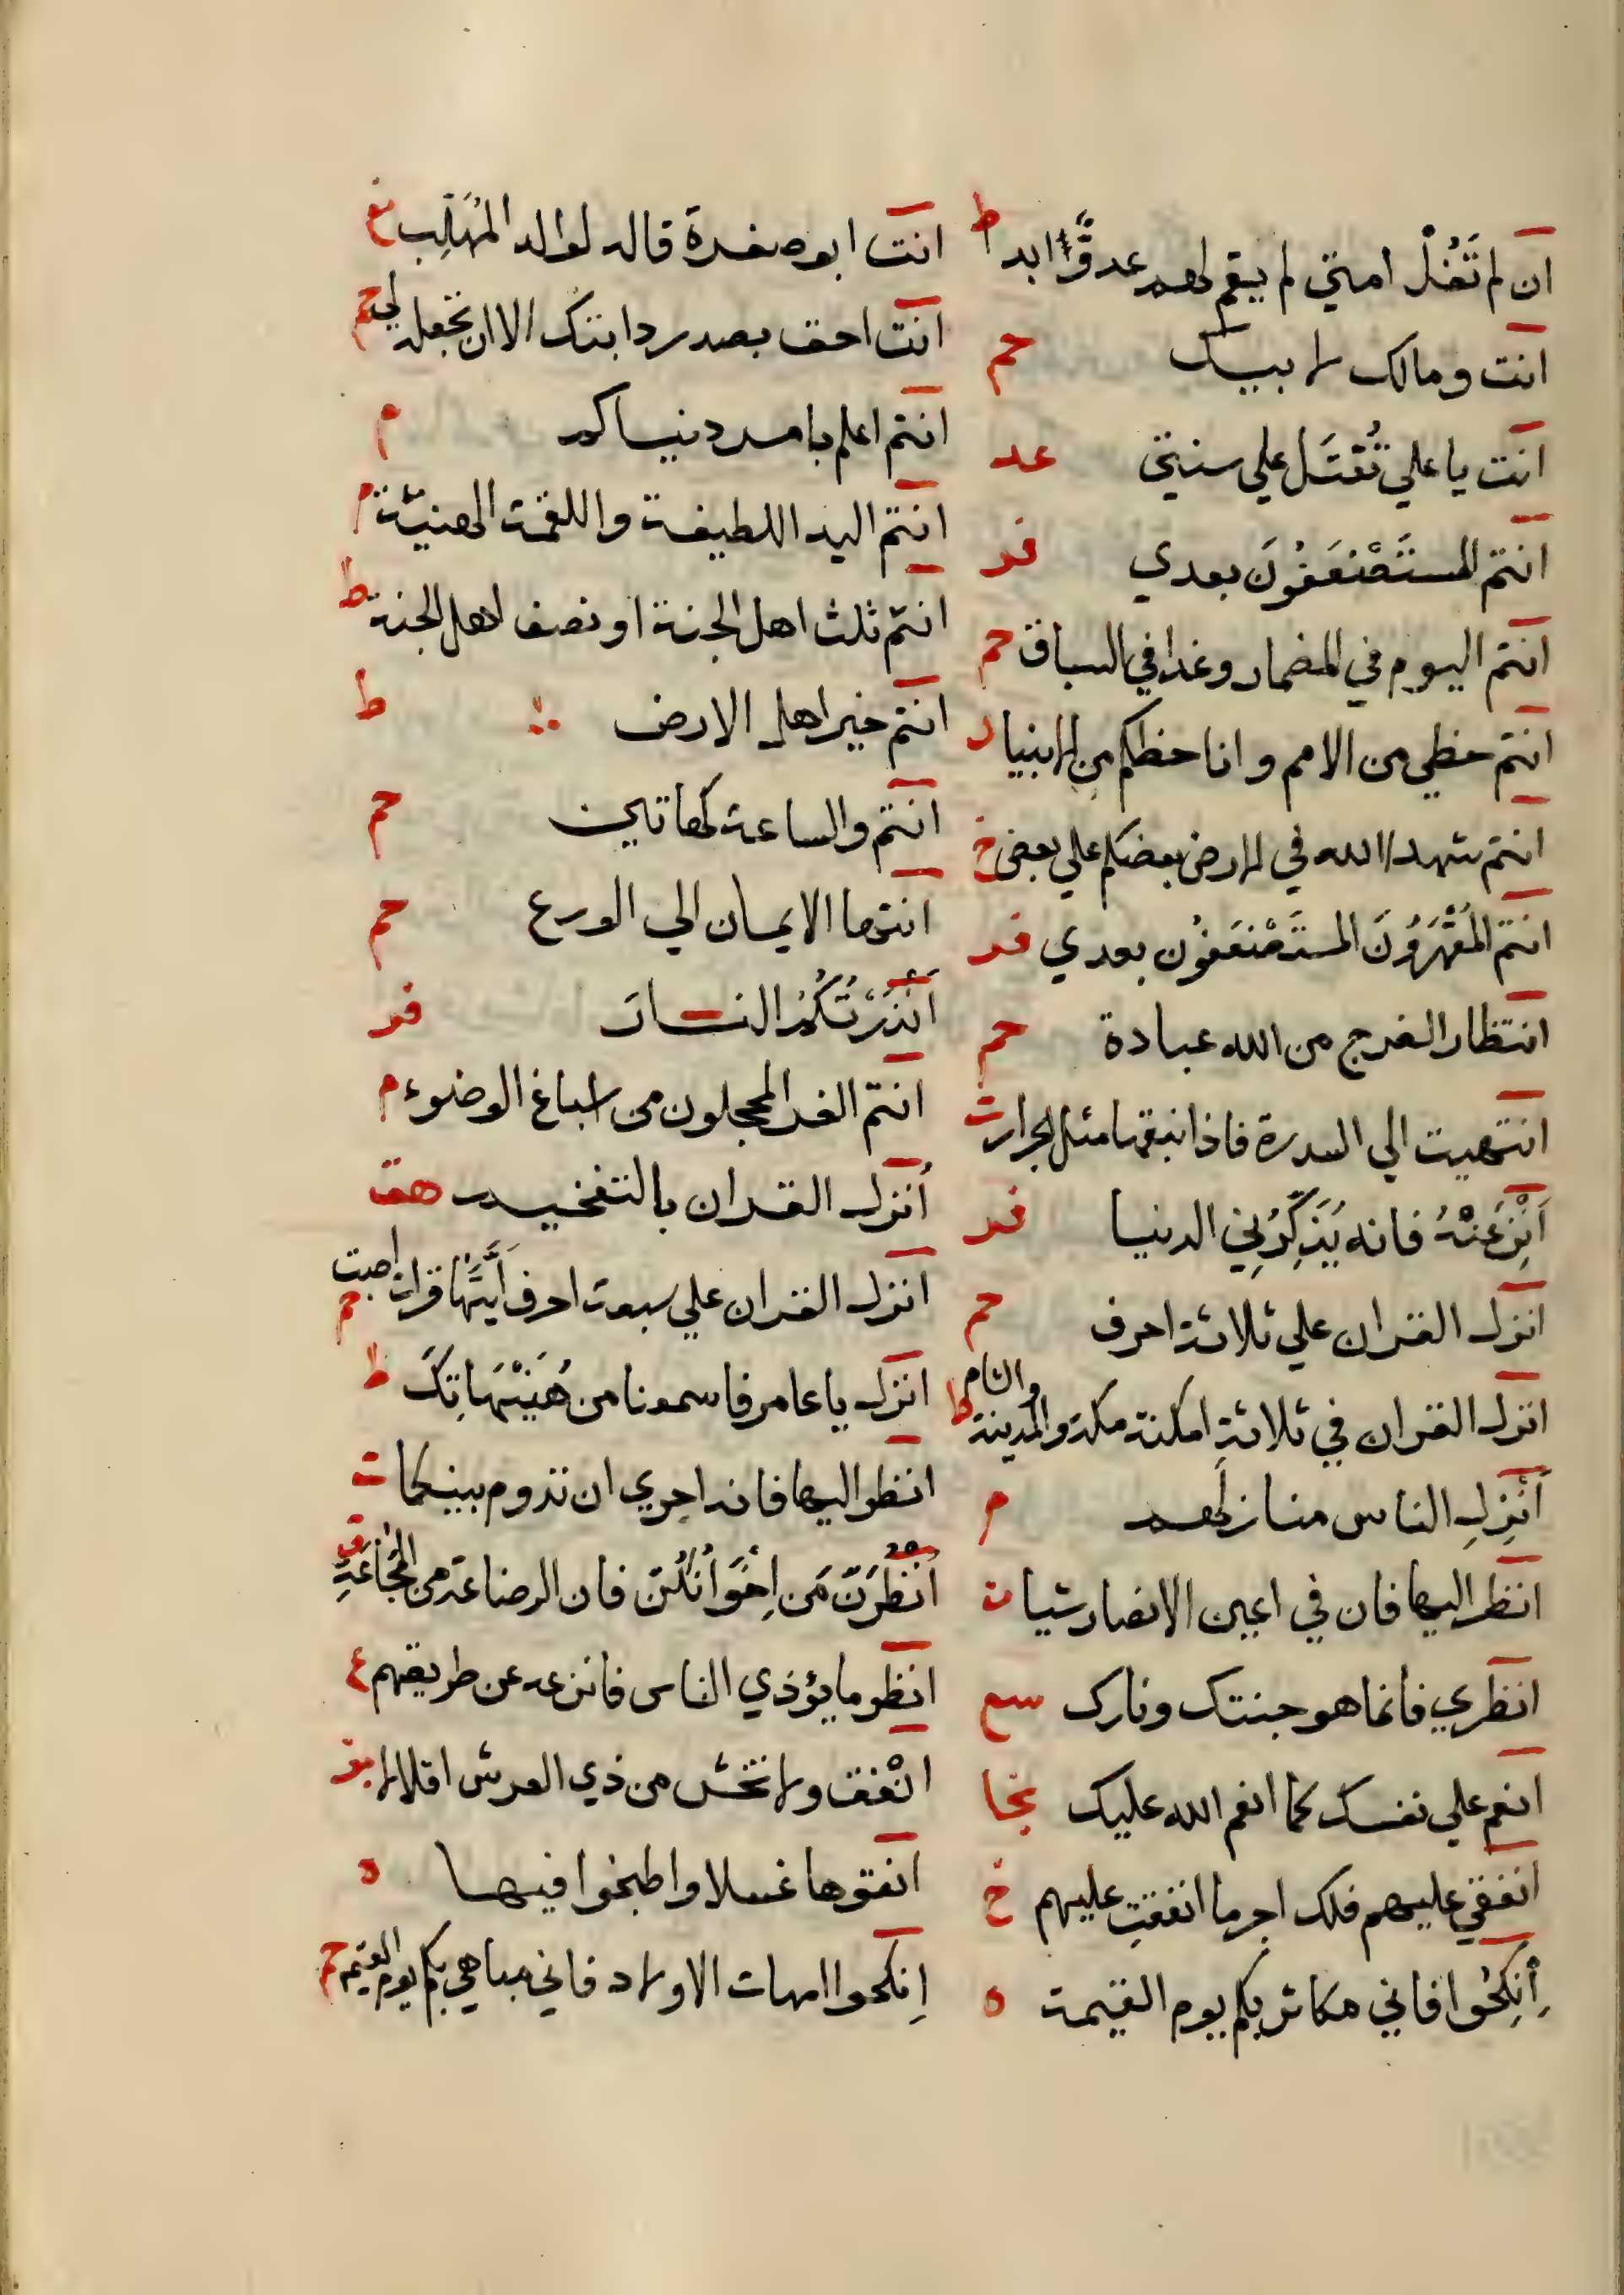 ان لم تَغُلْ امتي لم يقم لهم عدوٌّ ابدا ط
انت ومالك لابيك حم
انت يا علي تُقتَل علي سنتي عد
انتم المستَضْعَفُونَ بعدي فر
انتم اليوم في المضمار وغدا في السباق حم
انتم حظي من الامم وانا حظكم من الانبيا
انتم شهدا الله في الارض بعضكم علي بعض خ
انتم المُقْهَرُونَ المستَضْعَفُون بعدي فر
انتظار الفرج من الله عبادة حم
انتهيت الي السدرة فاذا نبقها مثل الجرار ت
اَنْزِعَنْهُ فانه يُذَكِّرُنِي الدنيا فر
انزل القران علي ثلاثة احرف حم
انزل القران في ثلاثةِ امكنة مكة والمدينة والشام ط
اَنْزِلِ الناس منازلَهم م
انظر اليها فان في اعين الانصار شيا ت
انظري فانما هو جنتك ونارك سع
انعم علي نفسك كما انعم الله عليك نجا
انفقي عليهم فلك اجر ما انفقتِ عليهم خ
اِنْكِحُوا فاني مكاثر بكم يوم القيمة ه
انت ابو صفرة قاله لوالد المُهَلَّب
انت احق بصدر دابتك الا ان تجعله لي حم
انتم اعلم بامر دنياكم م
انتم اليد اللطيفة واللقمة الهنيّة م
انتم ثلث اهل الجنة او نصف اهل الجنة ط
انتم خير اهل الارض ط
انتم والساعة كهاتين حم
انتها الايمان الي الورع حم
اَنْذَرْتُكُمُ النار فر
انتم الغر المحجلون من اسباغ الوضوء م
اُنزل القران بالتفخيم هق
انزل القران علي سبعة احرف اَيَّهَا قرات اصبت حم
انزل يا عامر فاسمعنا من هُنَيْهَاتِكَ ط
انظر اليها فانه احري ان تدوم بينكما ت
اُنْظُرْنَ مَن اِخْوَانُكُنّ فان الرضاعة من المَجَاعَةِ ق
انظر ما يؤذي الناس فانزعه عن طريقهم ع
انْفق ولا تخش من ذي العرش اقلالا بز
انقوها غسلا واطبخوا فيها ه
اِنكحوا امهات الاولاد فاني مباهي بكم يوم القيمة حم